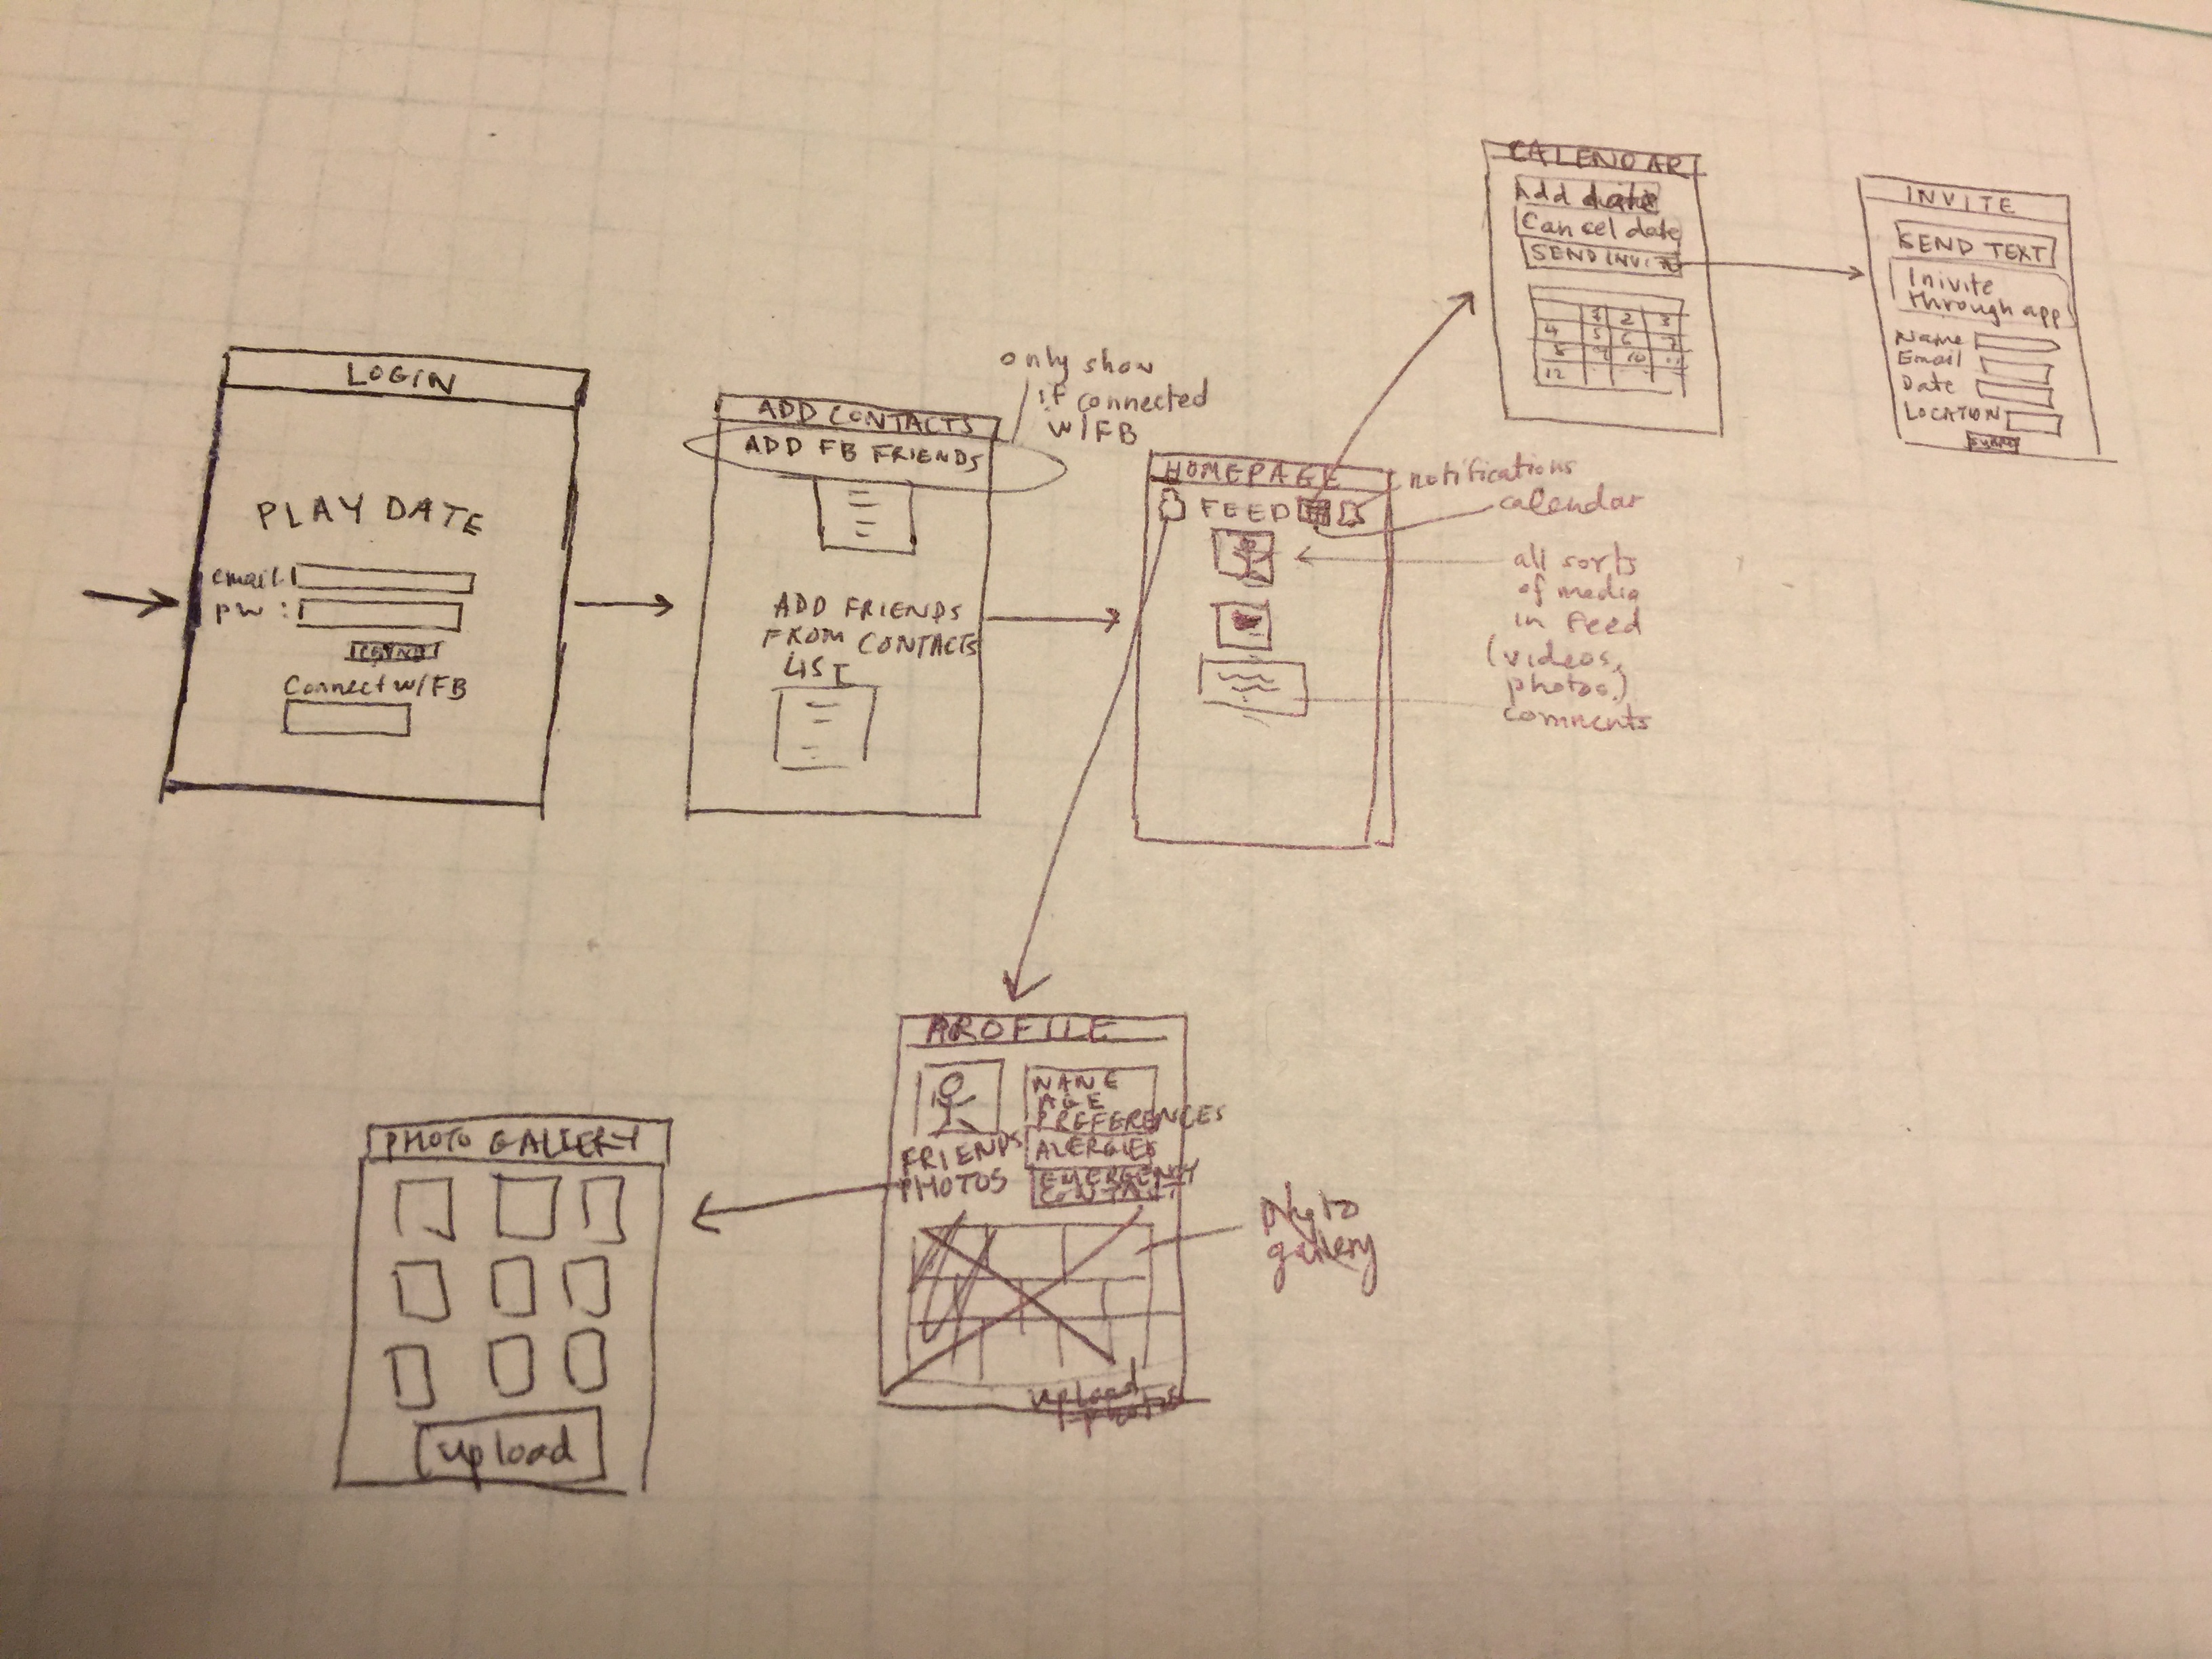 LOGIN
PLAY DATE
email:
pw :
Connect w/FB
ADD CONTACTS
ADD FB FRIENDS
ADD FRIENDS
FROM CONTACTS
LIST
only show
if connected
w/FB
HOMEPAGE
FEED
notifications
calendar
all sorts
of media
in feed
(videos,
photos)
comments
CALENDAR
Add date
Cancel date
SEND INVITE
1 2 3
4 5 6 7
8 9 10 11
12
INVITE
SEND TEXT
Inivite
through app
Name
Email
Date
LOCATION
PROFILE
NAME
AGE
PREFERENCES
ALERGIES
EMERGENCY
CONTACT
FRIENDS
PHOTOS
upload
photos
gallery
PHOTO GALLERY
upload